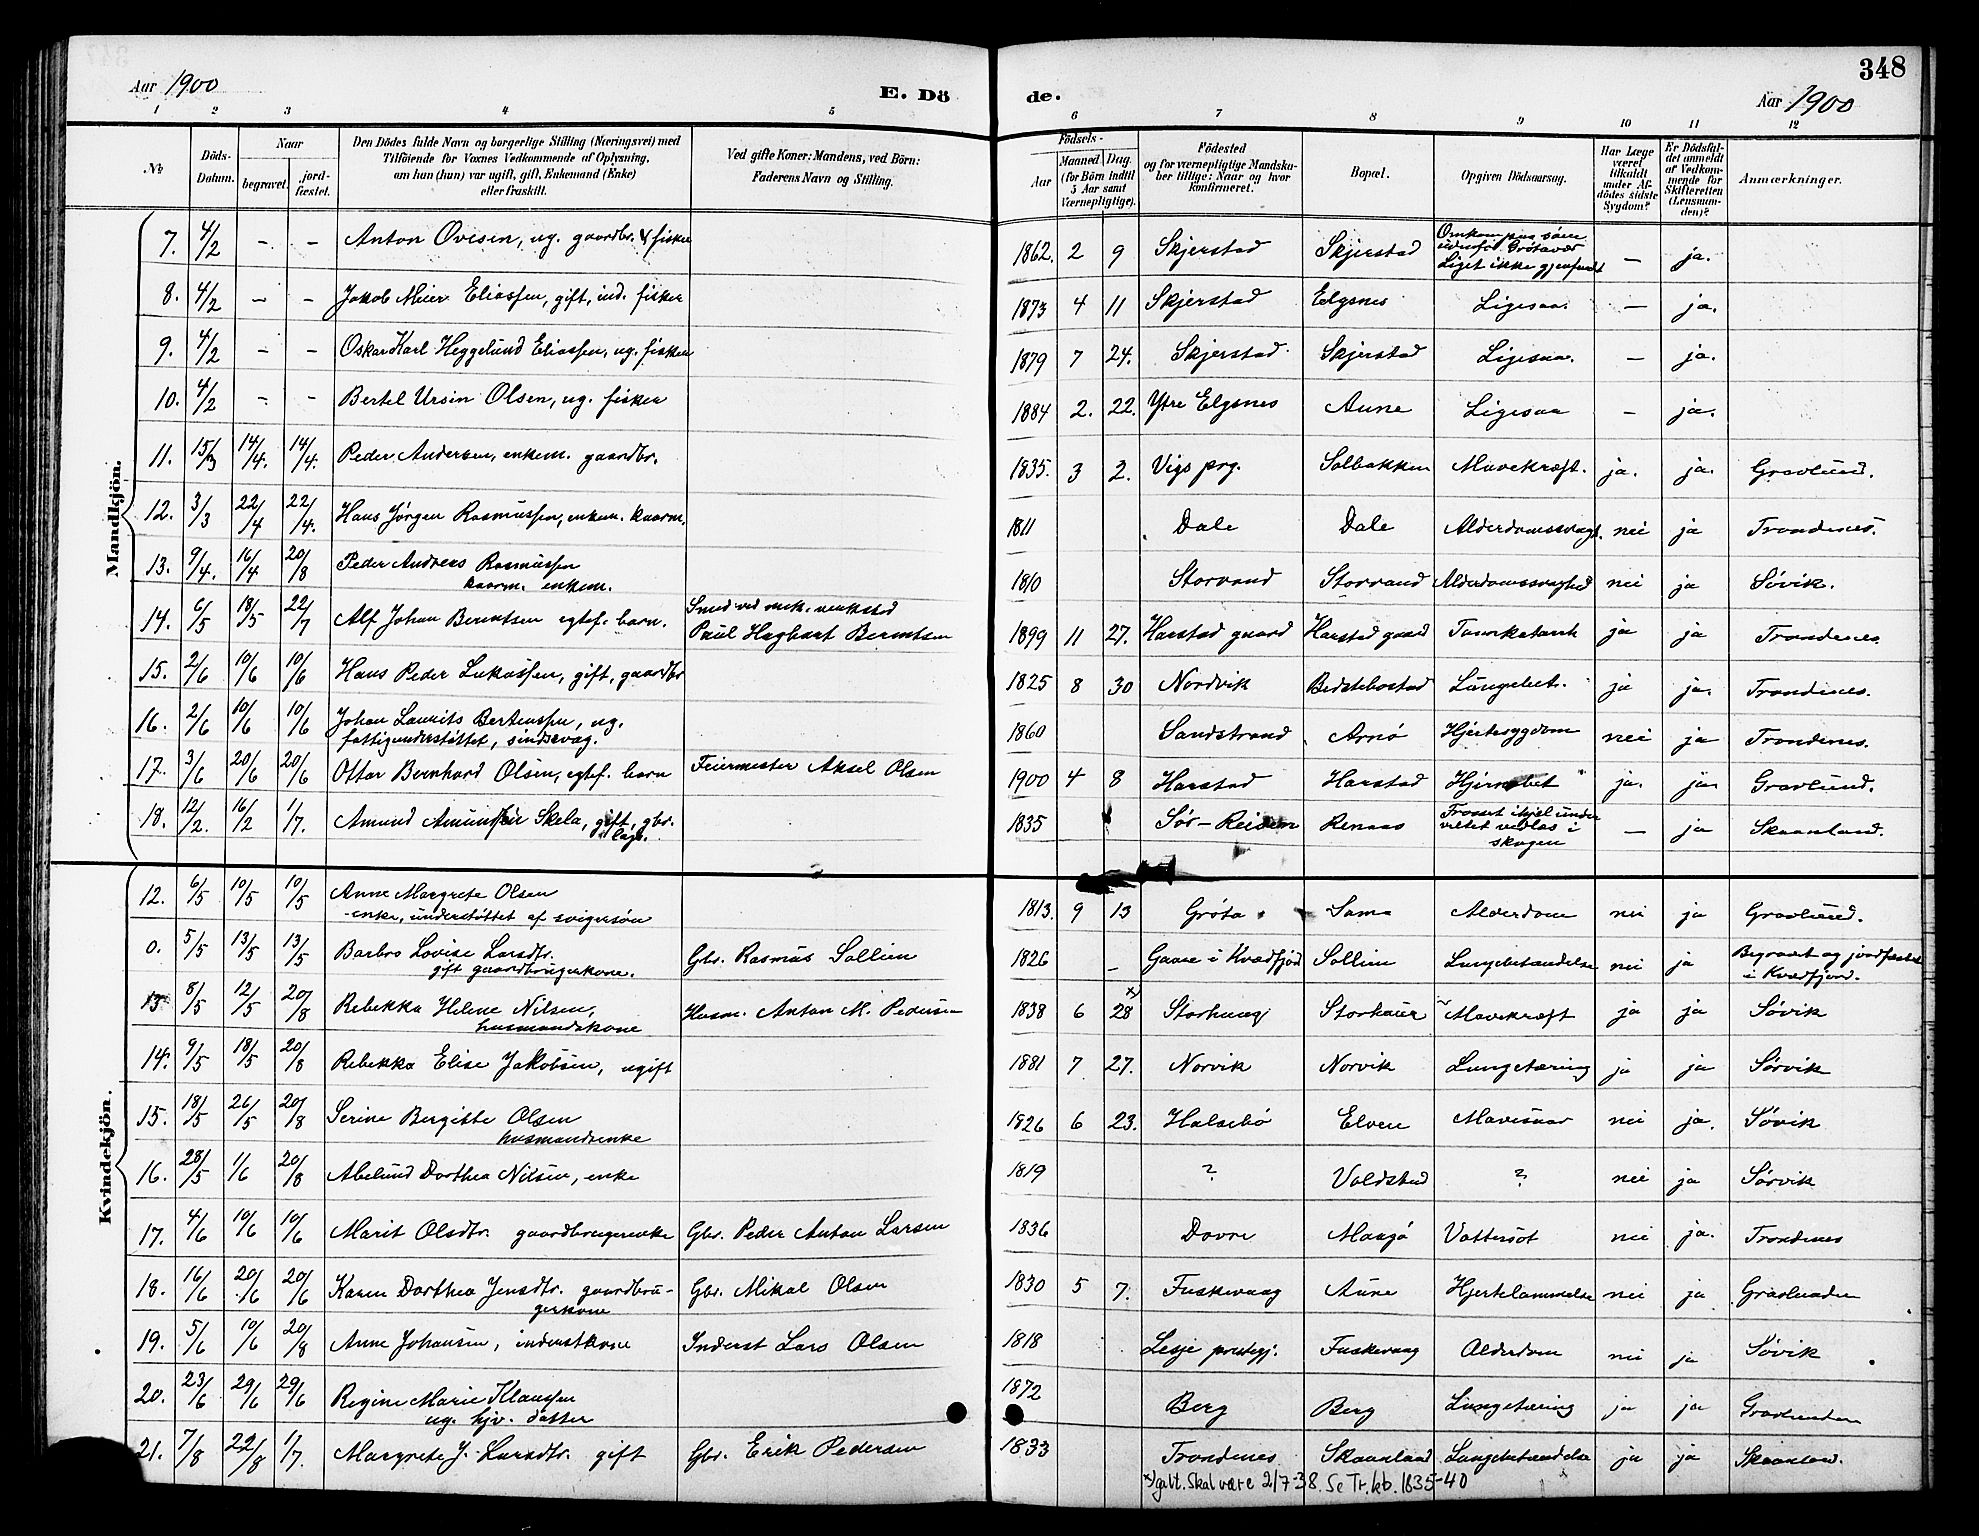 348
Aar 1900
E. Dö
de.
Aar 1900
1 2 3 4 5 6 7 8 9 10 11 12
No
Döds-Datum.
Naar
begravet.
jord-fæstet.
Den Dödes fulde Navn og borgerlige Stilling (Næringsvei) med
Tilföiende for Voxnes Vedkommende af Oplysning,
om han (hun) var ugift, gift, Enkemand (Enke)
eller fraskilt.
Ved gifte Koner: Mandens, ved Börn:
Faderens Navn og Stilling.
Födsels-
Aar
Maaned Dag
(for Börn indtil
5 Aar samt
Værnepligtige).
Födested
og for værnepligtige Mandska-
ber tillige: Naar og hvor
konfirmeret.
Bopæl.
Opgiven Dödsaarsag.
Har Læge
været
tilkaldt
under Af-
dödes sidste
Sygdom?
Er Dödsfal-
det anmeldt
af Vedkom-
mende for
Skifteretten
(Lensman-
den)?
Anmærkninger.
Mandkjön.
7. 4/2 – – Anton Ovesen, ug. gaardbr. & fisker 1862. 2 9 Skjerstad Skjerstad Omkom paa søen udenfor Grøtavær Liget ikke gjenfundt – ja.
8. 4/2 – – Jakob Meier Eliassen, gift, ind. fisker 1873 4 11 Skjerstad Elgsnes Ligesaa. – ja.
9. 4/2 – – Oskar Karl Heggelund Eliassen, ug. fisker 1879 7 24. Skjerstad Skjerstad Ligesaa. – ja.
10. 4/2 – – Bertel Ursin Olsen, ug. fisker 1884 2. 22. Ytre Elgsnes Aune Ligesaa – ja.
11. 15/3 14/4. 14/4. Peder Andersen, enkem. gaardbr. 1835. 3 2. Vigs prg. Solbakken Mavekræft. ja. ja. Gravlund.
12. 3/3 22/4 22/4. Hans Jørgen Rasmussen, enkem. kaarm. 1811 Dale Dale Alderdomssvagh. nei ja Trondenes.
13. 9/4. 16/4 20/8 Peder Andreas Rasmussen
kaarm. enkem. 1810 Storvand Storvand Alderdomssvaghed nei ja Søvik.
14. 6/5 18/5 22/7 Alf Johan Berntsen egtef. barn. Smed ved mek. verksted
Paul Hagbart Berntsen 1899 11 27. Harstad gaard Harstad gaard ja ja Trondenes.
15. 2/6 10/6 10/6 Hans Peder Lukassen, gift, gaardbr 1825 8 30 Nordvik Bedstebostad Lungebet. ja ja. Trondenes.
16. 2/6 10/6 10/6 Johan Laurits Bertenssen, ug.
fattigunderstøttet, sindssvag. 1860 Sandstrand Arnø Hjertesygdom nei ja Trondenes.
17. 3/6 20/6 20/6 Ottar Bernhard Olsen, egtef. barn Feiermester Aksel Olsen 1900 4 8 Harstad Harstad Hjernebet ja. ja. Gravlund.
18. 12/2. 16/2 1/7. Amund Skela, gift, gbr. 1835 Sør-Reisen Renaas Frosset ihjel under veltet vedlas i skogen – ja Skaanland.
Kvindekjön.
12. 6/5 10/5 10/5 Anne Margrete Olsen
enke, understøttet af svigersøn 1813. 9 13 Grøta Sama Alderdom nei ja Gravlund.
0. 5/5 13/5 13/5 Barbro Lovise Larsdtr.
gift gaardbrugerkone. Gbr. Rasmus Sollien 1826 – Gaare i Kvædfjod Sollien Lungebetændelse nei ja Begravet og jordfæstet i Kvædfjord.
13 8/5 12/5 20/8 Rebekka Helene Nilsen,
husmandskone Husm. Anton M. Pedersen 1838 6 28 x) Storhaug Storhaug Mavekræft ja ja Søvik
14. 9/5 18/5 20/8 Rebekka Elise Jakobsen, ugift 1881 7 27. Norvik Norvik Lungetæring ja ja Sørvik
15. 18/5 26/5 20/8 Serine Bergitte Olsen
husmandsenke 1826 6 23. Halsebø Elven Mavesaar nei ja. Søvik
16. 28/5 1/6 20/8 Abelund Dorthea Nilsen, enke 1819 ? Voldstad ? nei ja Sørvik
17. 4/6 10/6 10/6 Marit Olsdtr. gaardbrugerenke Gbr. Peder Anton Larsen 1836 Dovre Maagø Vattersot nei ja. Trondenes
18. 16/6 20/6 20/6 Karen Dorthea Jensdtr. gaardbru-
gerkone Gbr. Mikal Olsen 1830 5 7. Fuskevaag Aune Hjertelammelse nei ja Gravlunden
19. 5/6 10/6 20/8 Anne Johansen, inderstkone Inderst Lars Olsen 1818 Lesje prestegj. Fuskevaag Alderdom nei ja Søvik
20. 23/6 29/6 29/6 Regine Marie Klaussen
ug. hjv. datter 1872 Berg Berg Lungetæring ja ja Gravlunden
21. 7/8 22/8 1/7. Margrete J. Larsdtr. gift Gbr. Erik Pedersen 1833 Trondenes Skaanland Lungebetændelse ja ja Skaanland.
x) galt. Skal være 2/7-38. Se Tr. kb. 1835-40